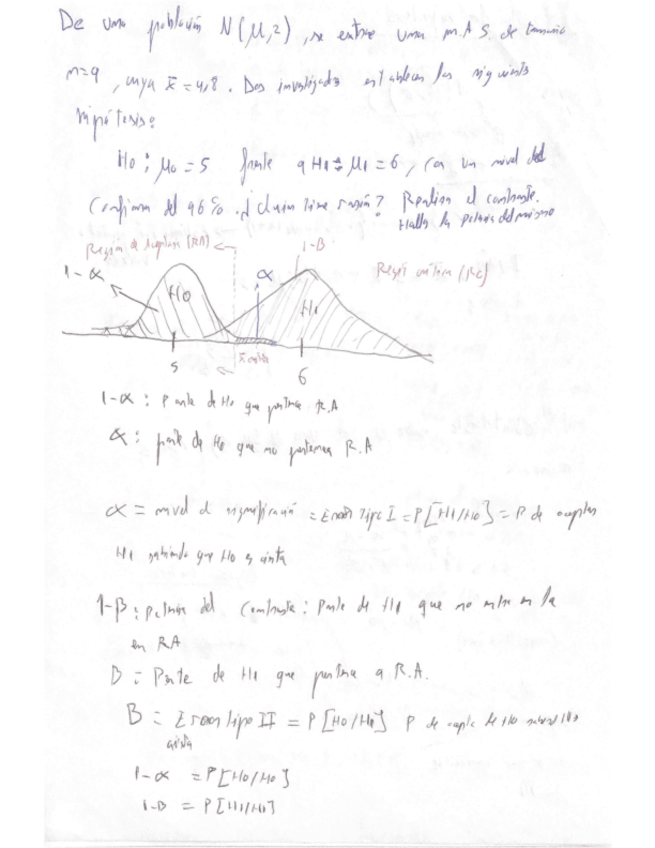 De una población N(μ,2), se extrae una m.A.S. de tamaño
n=9, cuya x̄ = 4,8. Dos investigadores establecen las siguientes
hipótesis:
H0: μ0 = 5 frente a H1: μ1 = 6, con un nivel del
Confianza del 96%. ¿Quién tiene razón? Realiza el contraste.
Halla la potencia del mismo
Región de Aceptación (RA)
1-B
1-α
H0
α
H1
Región crítica (RC)
5
x̄ crítica
6
1-α: Parte de H0 que pertenece R.A
α: parte de H0 que no pertenece R.A
α = nivel de significación = Error Tipo I = P[H1/H0] = P de aceptar
H1 sabiendo que H0 es cierta
1-β: Potencia del Contraste: Parte de H1 que no entra en la
en RA
B = Parte de H1 que pertenece a R.A.
B = Error tipo II = P[H0/H1] P de aceptar H0
cierta
1-α = P[H0/H0]
1-B = P[H1/H1]